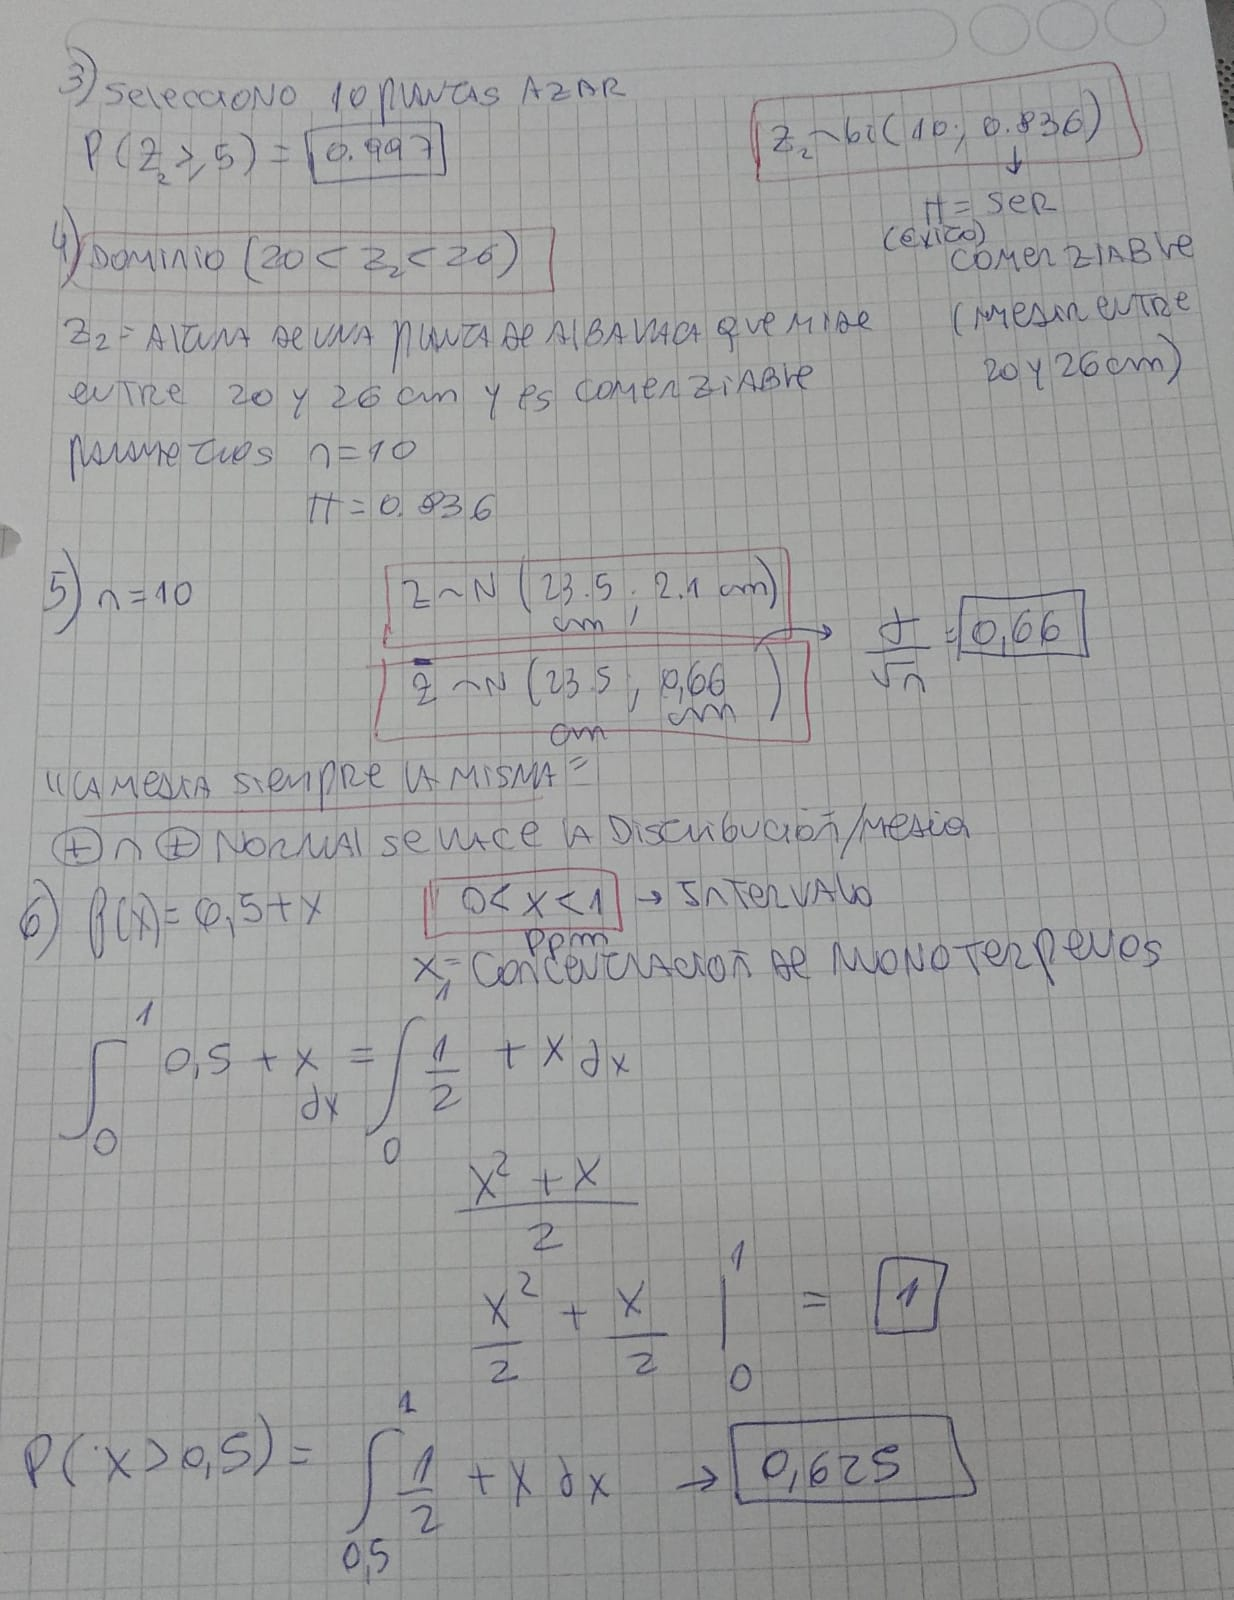 3) Selecciono 10 plantas AZAR
P(Z₂ ≥ 5) = 0.997
Z₂ ~ bi(10; 0.836)
↓
π = SER
(éxito)
COMERZIABLE
(MEDIR ENTRE
20 Y 26 cm)
4) DOMINIO (20 < Z₂ < 26)
Z₂ = ALTURA DE UNA PLANTA DE ALBAHACA QUE MIDE
ENTRE 20 Y 26 cm Y ES COMERZIABLE
PARAMETROS n = 10
π = 0.836
5) n = 10
Z ~ N (23.5 cm ; 2.1 cm)
Z̄ ~ N (23.5 cm ; 0,66 cm) → σ/√n = 0,66
"LA MEDIA SIEMPRE LA MISMA"
⊕ n ⊕ NORMAL SE HACE LA DISTRIBUCIÓN/MEDIA
6) f(x) = 0,5 + x 0 < x < 1 → INTERVALO
ppm
X₁ = CONCENTRACIÓN DE MONOTERPENOS
∫₀¹ 0,5 + x dx = ∫₀ 1/2 + x dx
x² + x / 2
x²/2 + x/2 |₀¹ = 1
P(X > 0,5) = ∫₀,₅¹ 1/2 + x dx → 0,625